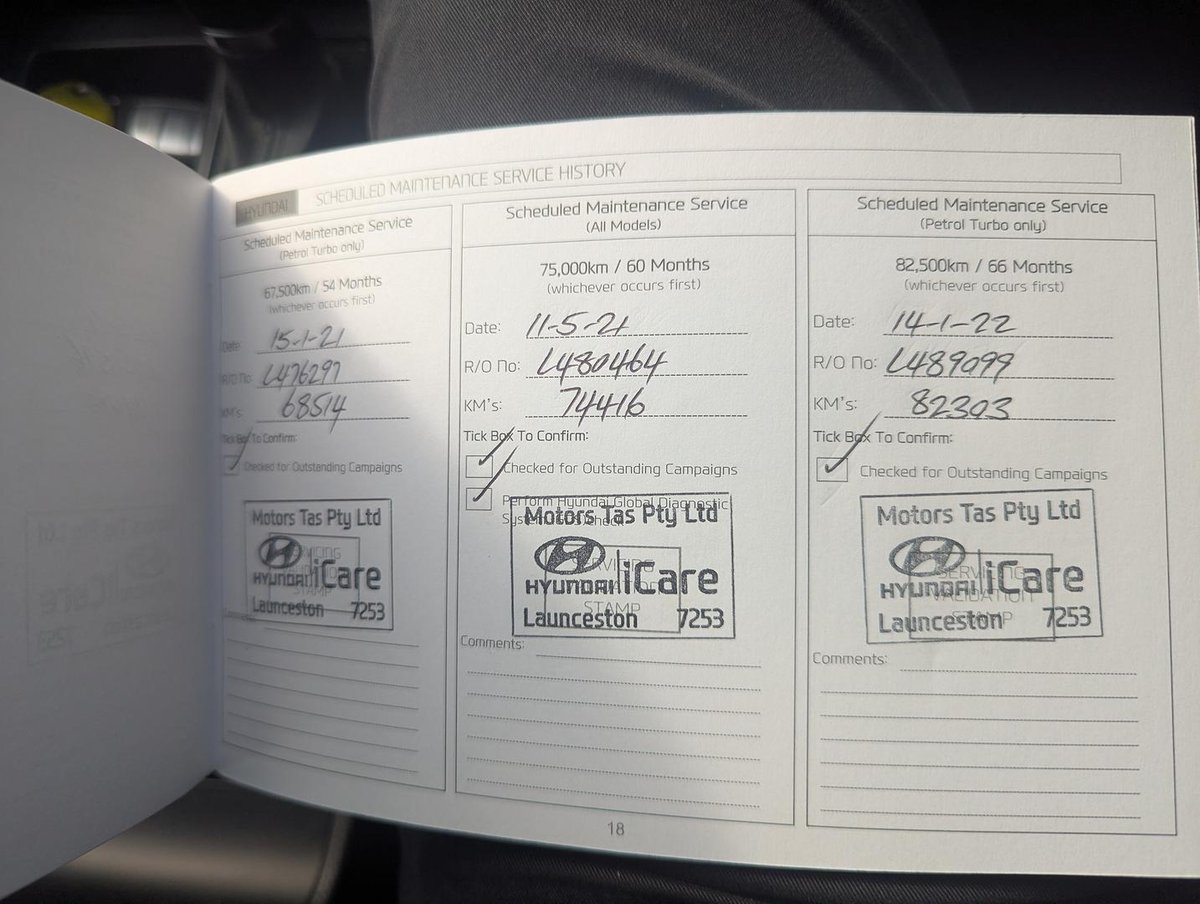 HYUNDAI SCHEDULED MAINTENANCE SERVICE HISTORY
Scheduled Maintenance Service
(Petrol Turbo only)
67,500km / 54 Months
(whichever occurs first)
Date: 15-1-21
R/O No: L476297
KM's: 68514
Tick Box To Confirm:
Checked for Outstanding Campaigns
Motors Tas Pty Ltd
HYUNDAI iCare
Launceston 7253
STAMP
Scheduled Maintenance Service
(All Models)
75,000km / 60 Months
(whichever occurs first)
Date: 11-5-21
R/O No: L480464
KM's: 74416
Tick Box To Confirm:
Checked for Outstanding Campaigns
Perform Hyundai Global Diagnostic
Motors Tas Pty Ltd
HYUNDAI iCare
STAMP
Launceston 7253
Comments:
Scheduled Maintenance Service
(Petrol Turbo only)
82,500km / 66 Months
(whichever occurs first)
Date: 14-1-22
R/O No: L489099
KM's: 82303
Tick Box To Confirm:
Checked for Outstanding Campaigns
Motors Tas Pty Ltd
SERVICING
HYUNDAI iCare
VALIDATION
STAMP
Launceston 7253
Comments:
18